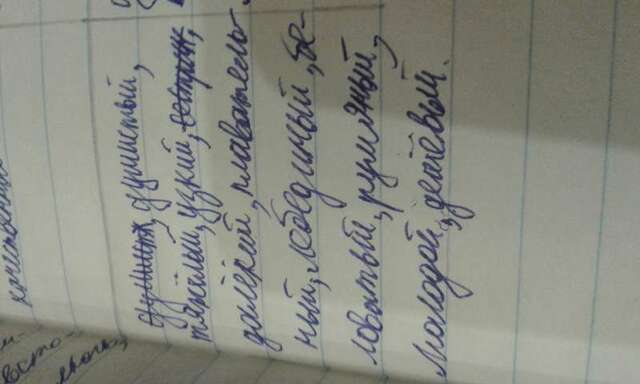 качественн
душистый,
тяжёлый, узкий,
далёкий, плаватель-
ный, лебединый, бе-
ловатый, румяный,
молодой, дешёвый.